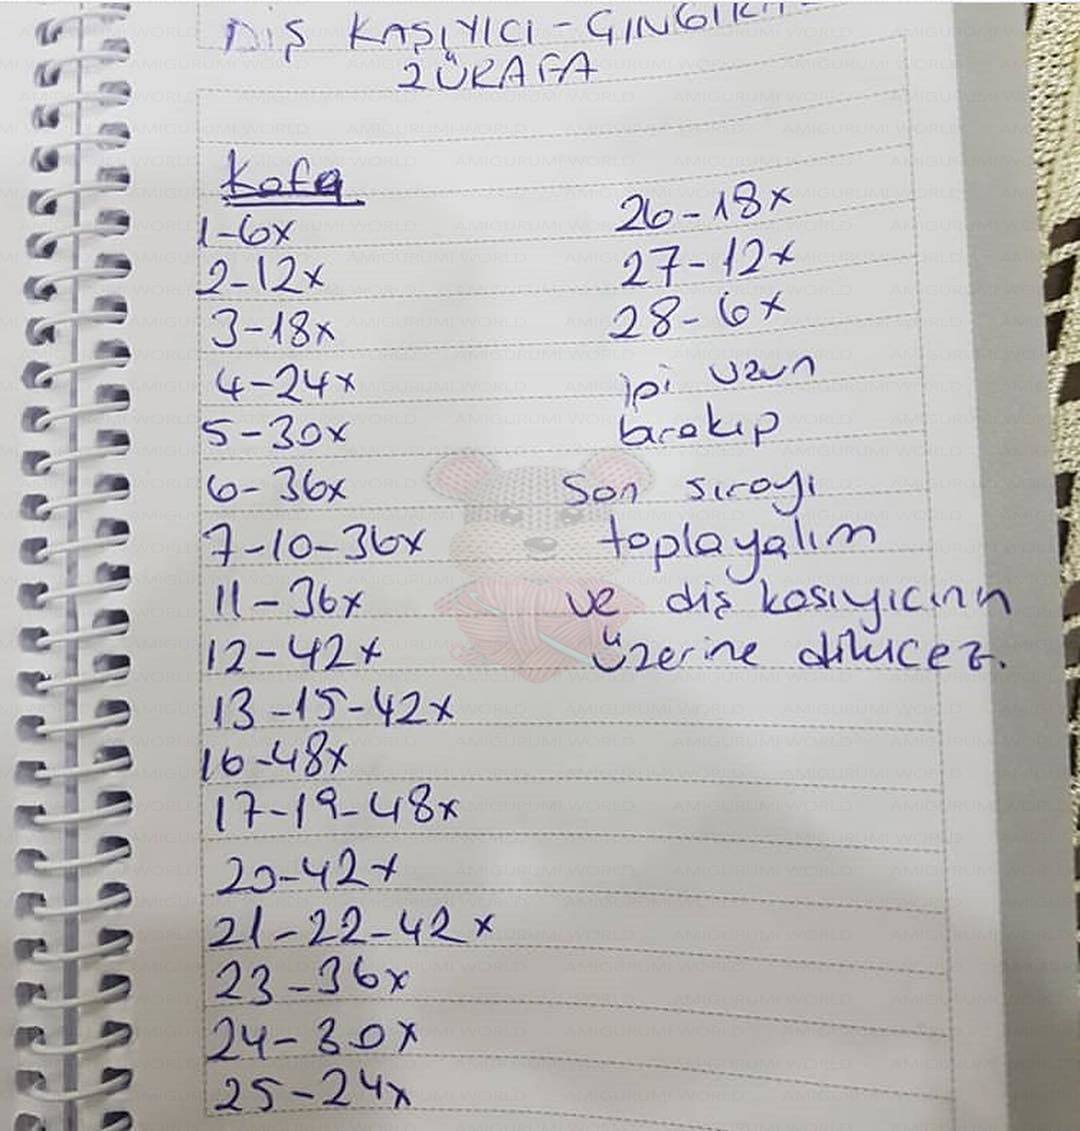 DİŞ KAŞIYICI - ÇINGIRA
ZÜRAFA
Kafa
1-6x
2-12x
3-18x
4-24x
5-30x
6-36x
7-10-36x
11-36x
12-42x
13-15-42x
16-48x
17-19-48x
20-42x
21-22-42x
23-36x
24-30x
25-24x
26-18x
27-12x
28-6x
ipi uzun
bırakıp
Son sırayı
toplayalım
ve diş kasıyıcının
üzerine dikicez.
AMIGURUMI WORLD